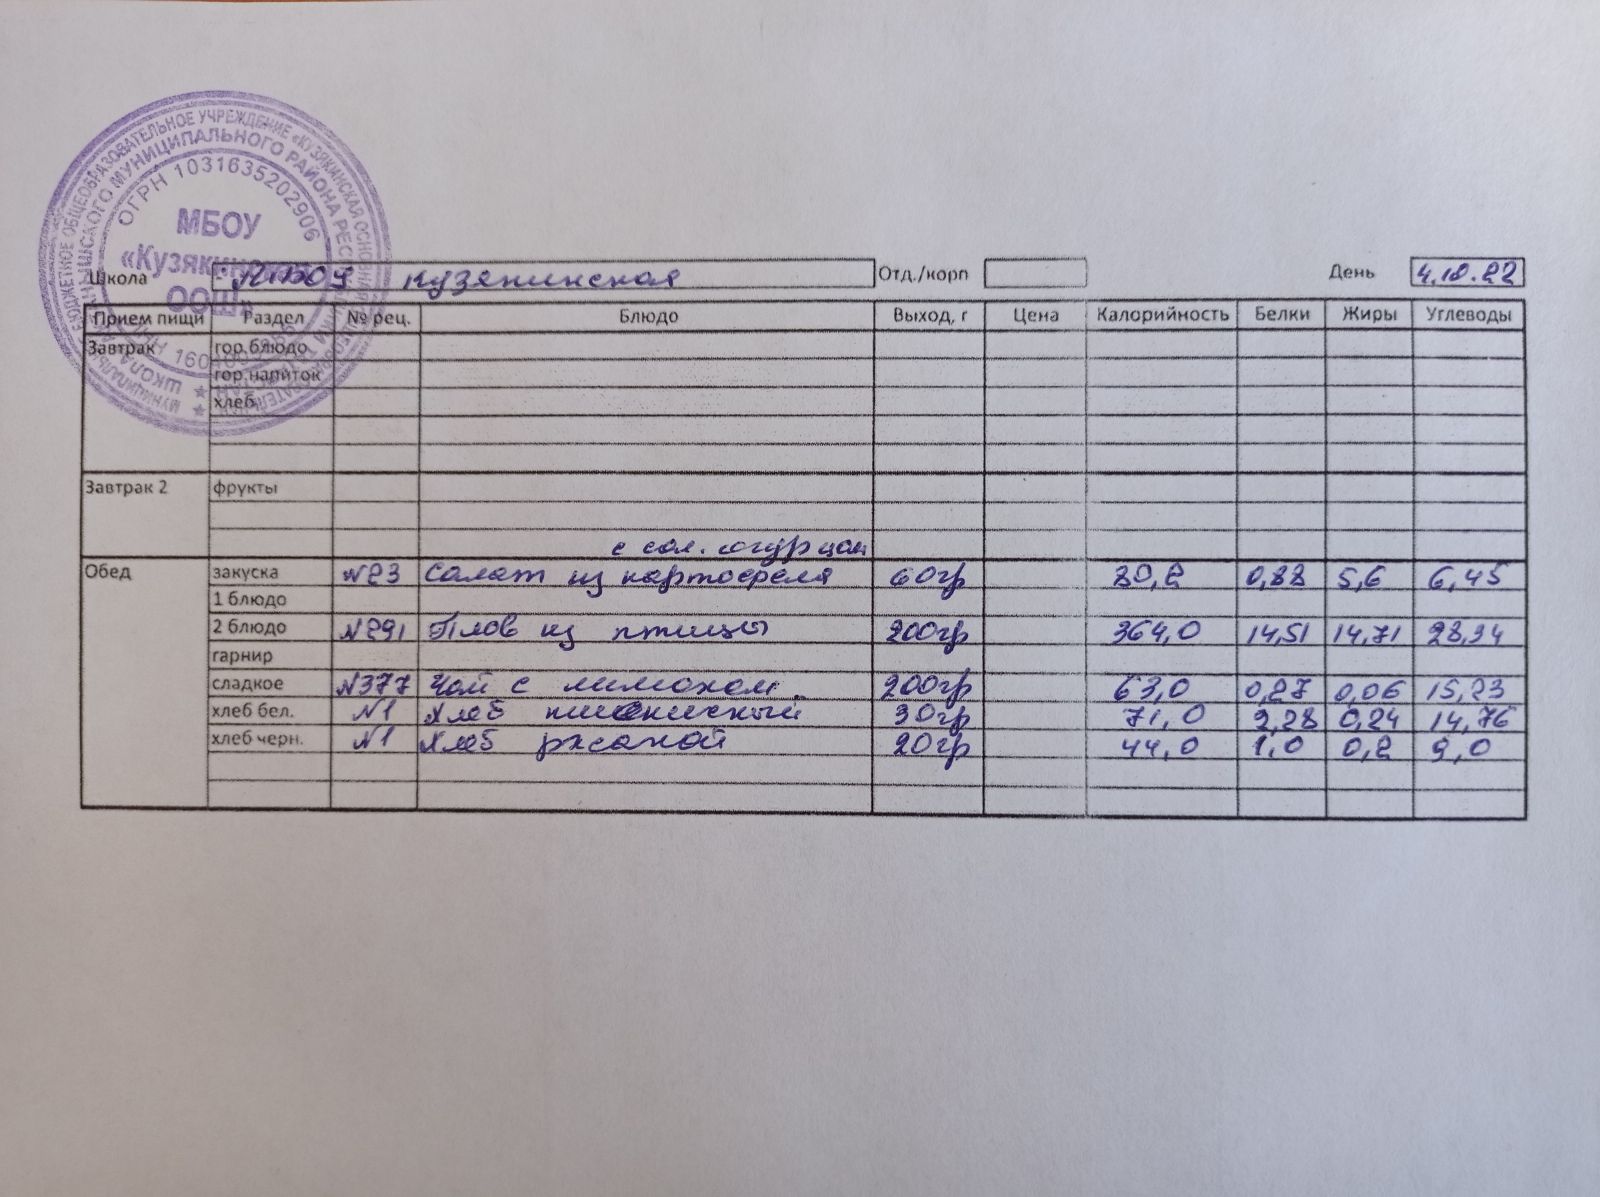 МУНИЦИПАЛЬНОЕ БЮДЖЕТНОЕ ОБЩЕОБРАЗОВАТЕЛЬНОЕ УЧРЕЖДЕНИЕ «КУЗЯКИНСКАЯ ОСНОВНАЯ
МУНИЦИПАЛЬНОГО РАЙОНА
ОГРН 1031635202906
МБОУ
«Кузякинская
ООШ»
Школа МБОУ Кузякинская Отд./корп День 4.10.22
Прием пищи Раздел № рец. Блюдо Выход, г Цена Калорийность Белки Жиры Углеводы
Завтрак гор.блюдо
гор.напиток
хлеб
Завтрак 2 фрукты
с сол. огурцом
Обед закуска №23 Салат из картофеля 60гр 80,2 0,88 5,6 6,45
1 блюдо
2 блюдо №291 Плов из птицы 200гр 364,0 14,51 14,71 28,94
гарнир
сладкое №377 Чай с лимоном 200гр 63,0 0,27 0,06 15,23
хлеб бел. №1 Хлеб пшеничный 30гр 71,0 2,28 0,24 14,76
хлеб черн. №1 Хлеб ржаной 20гр 44,0 1,0 0,2 9,0